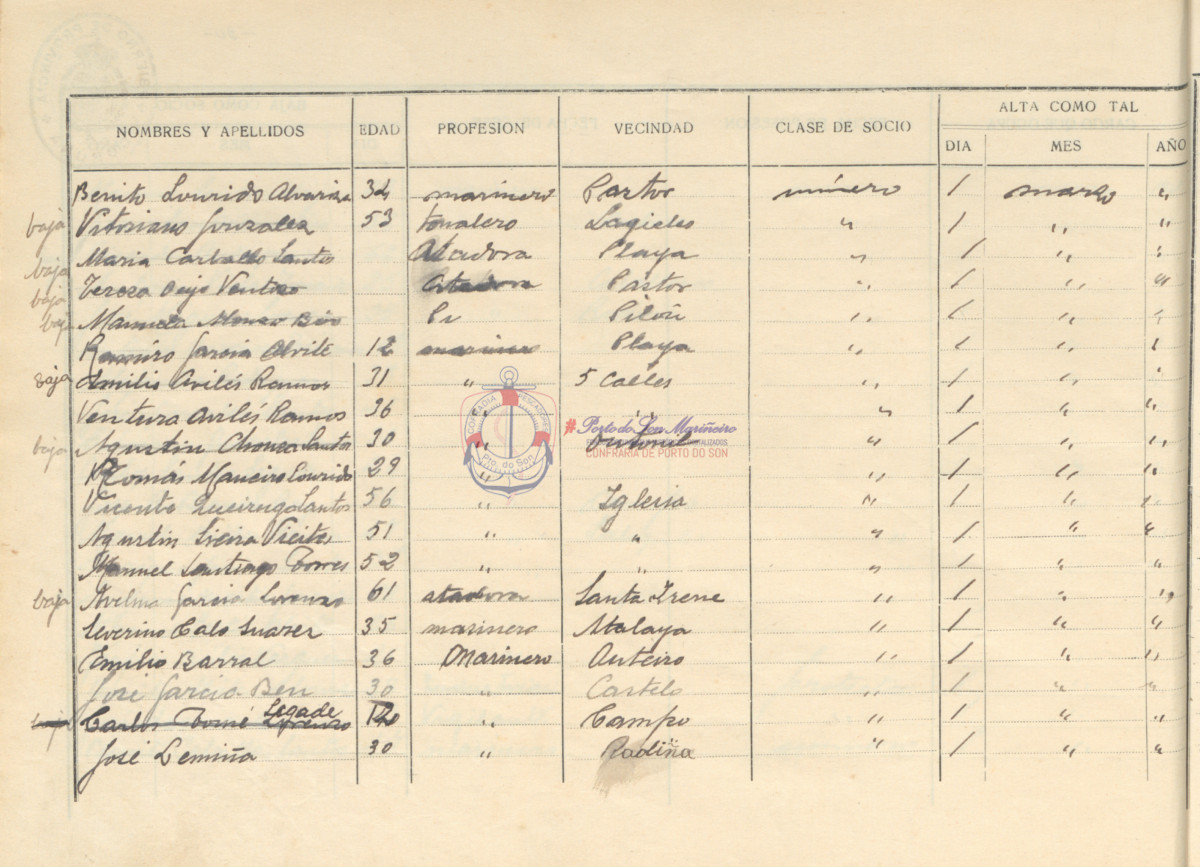 ALTA COMO TAL
NOMBRES Y APELLIDOS EDAD PROFESION VECINDAD CLASE DE SOCIO DIA MES AÑO
Benito Lourido Alvariza 34 marinero Pastor número 1 marzo "
baja Vitoriano Gonzalez 53 tonalero " 1 " "
baja Maria Carballo Santos Atadora Playa " 1 " "
baja Tereza Oujo Ventoso Atadora Pastor " 1 " "
baja Manuela Alonso Pilón " 1 " "
Ramiro Garcia Alvite 12 marinero Playa " 1 " "
baja Emilio Avilés Ramos 31 " 5 Calles " 1 " "
Ventura Avilés Ramos 36 " " " 1 " "
baja Agustin Santos 30 " " 1 " "
Romás Maneiro Lourido 29 " " 1 " "
Vicente Queiruga Santos 56 " Iglesia " 1 " "
Agustin Sieira Vieites 51 " " " 1 " "
Manuel Santiago Torres 52 " " " 1 " "
baja Avelina Garcia Lorenzo 61 atadora Santa Irene " 1 " "
Severino Calo Suarez 35 marinero Atalaya " 1 " "
Emilio Barral 36 Marinero Outeiro " 1 " "
José Garcia Ben 30 " Castelo " 1 " "
baja Carlos Tomé Legade Lorenzo " Campo " 1 " "
José Lemiña 30 " Radiña " 1 " "
COFRADIA PESCADORES
Pto. do Son
#Porto do Son Mariñeiro
CONFRARIA DE PORTO DO SON